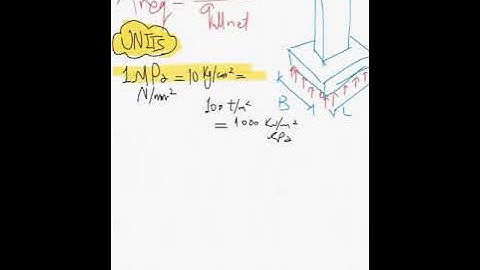 Areq = ___
qallnet
UNITS
1 MPa = 10 Kg/cm² =
N/mm²
100 t/m²
= 1000 KN/m²
KPa
B
L